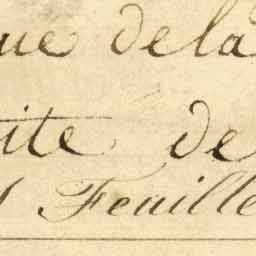 ue de la
ite de
Feuille